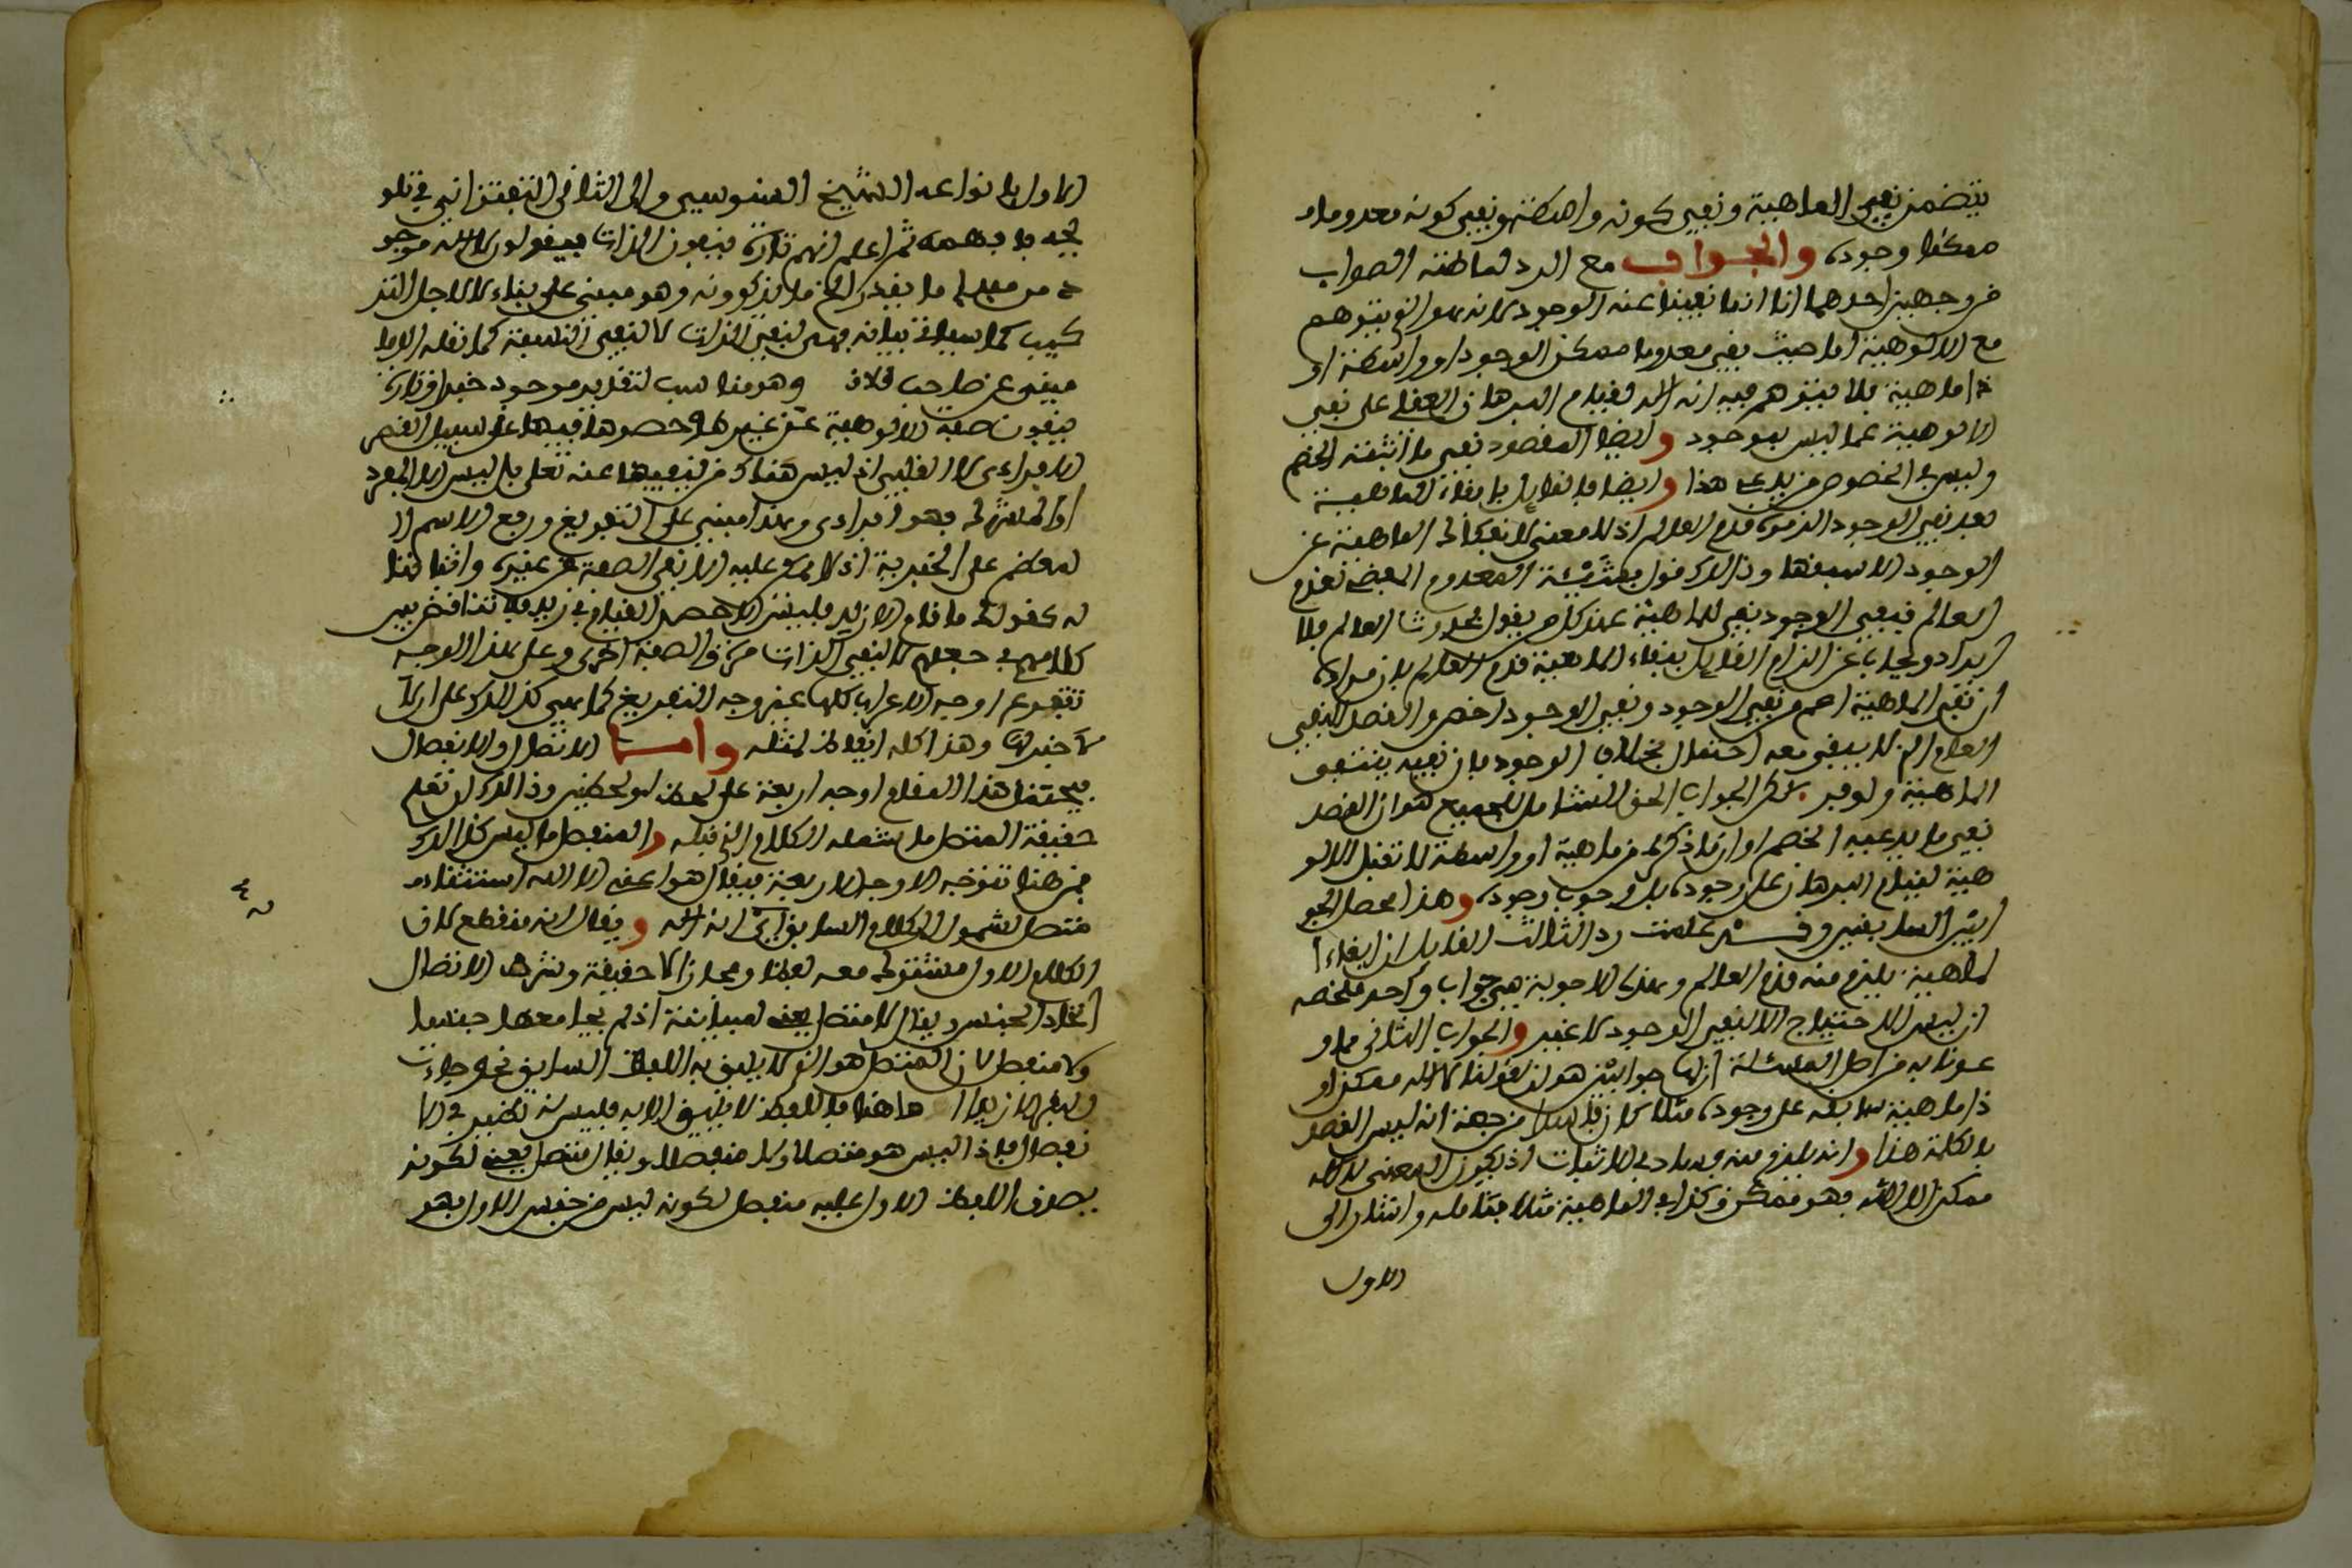 يتضمن نفي الماهية ونفي كونه واسطة ونفي كونه معدوما
ممكنا وجوده والجواب مع الرد لما ظنه الصواب
من وجهين احدهما انا انما نفينا عنه الوجود لانه هو الذي يتوهم
مع الالوهية اما حيث بقي معدوما ممكن الوجود او واسطة او
ذا ماهية فلا يتوهم فيه انه اله لقيام البرهان العقلي على نفي
الالوهية عما ليس بموجود وايضا المقصود نفي ما اثبته الخصم
وليس في الخصوم من يدعي هذا وايضا فالقايل بابقاء الماهية
بعد نفي الوجود الزموه قدم العالم اذ لا معنى لانفكاك الماهية عن
الوجود الا سبقها وذالك قول بشيئية المعدوم المفضي لقدم
العالم فنفي الوجود نفي للماهية عند كل من يقول بحدوث العالم فلا
ايراد ويجاب عن الزام القايل ببقاء الماهية قدم العالم بان مراده
ان نفي الماهية اعم من نفي الوجود ونفي الوجود اخص والقصد النفي
العام الذي لا يبقى معه احتمال بخلاف الوجود فان نفيه ينتفي
الماهية ولو قيل لكن الجواب الحق الشامل للجميع هو ان القصد
نفي ما يدعيه الخصم او ان ما ذكر من ماهية او واسطة لا تقبل الالو
هية لقيام البرهان على وجوده بل وجوب وجوده وهذا محصل الجو
ابين السابقين وقد علمت رد الثالث القايل ان ابقاء ا
لماهية يلزم منه قدم العالم وهذه الاجوبة هي جواب واحد ملخصه
ان ليس الاحتياج الا لنفي الوجود لا غير والجواب الثاني مما و
عدنا به من اصل المسئلة ان لها جوابين هو ان قولنا لا اله ممكن او
ذا ماهية سابقة على وجوده مثلا كان فاسدا من جهة انه ليس القصد
بالكلمة هذا وانه يلزم منه فساد في الاثبات اذ يكون المعنى لا اله
ممكن الا الله فهو ممكن وكذا في الماهية مثلا فتامله واشار الى
الاول
الاول بانواعه الشيخ السنوسي والى الثاني التفتزاني في تلو
يحه فافهمه ثم اعلم انهم تارة ينفون الذات فيقولون لا اله موجو
د من الى ما يقدر الخ ما يذكرونه وهو مبني على بناء لا لاجل التر
كيب كما سياتي بيانه فهي لنفي الذات لا لنفي النسبة كما نقله الدما
ميني عن صاحب وهو مناسب لتقدير موجود خبرا وتارة
ينفون صفة الالوهية عن غيره او حصرها فيها على سبيل القصر
الافرادي لا القلبي اذ ليس هناك من ينفيها عنه تعلى بل ليس الا الجمود
او المشرك فهو افرادي وهذا مبني على التفريغ ورفع الاسم ا
لمعظم على الخبرية اذ لا يحمل عليه الا نفي الصفة عن غيره واثباتها
له كقولك ما قام الا زيد فليس الا حصر القيام في زيد فلا تناقض بين
كلامهم في جعلهم لا لنفي الذات مرة والصفة اخرى وعلى هذا الوجه
تتفرع اوجه الاعراب كلها غير وجه التفريغ كما هي كذالك على ان لا
لا خبر لها وهذا كله ايقاظ لمثله واما الاتصال والانفصال
فيحتمل هذا المقام اوجه اربعة على لحظ او لحظين وذالك ان تعلم
حقيقة المتصل ما يشمله الكلام الذي قبله والمنفصل ما ليس كذالك
فمن هنا تتوجه الاوجه الاربعة فيقال هو اعني الا الله استثناء
متصل لشموله الكلام السابق اي انه اله ويقال انه منقطع لان
الكلام الاول مشترك معه لفظا ومجازا لا حقيقة وشرط الاتصال
اتحاد الجنس ويقال لا متصل يعني لمباينته اذ لم يجامعها جنسا
ولا منفصل لان المنفصل هو الذي لا يليق به اللفظ السابق نحو جاءت
القوم الا زيدا هاهنا فاللفظ لا يليق الا به فليس له نظير في الا
نفصال فاذا ليس هو متصلا ولا منفصلا ويقال متصل يعني لكونه
يصدق اللفظ الاول عليه منفصل لكونه ليس من جنس الاول فهو